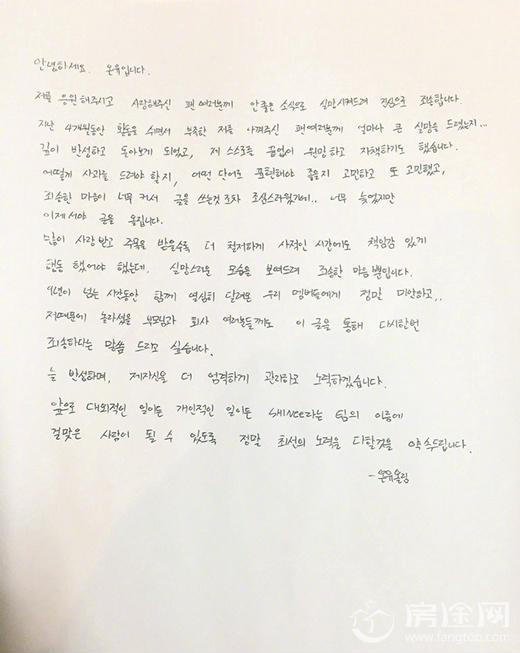 안녕하세요. 온유입니다.
저를 응원해주시고 사랑해주신 팬여러분께 안좋은 소식으로 실망시켜드려 진심으로 죄송합니다
지난 4개월동안 활동을 쉬면서 부족한 저를 아껴주신 팬여러분께 얼마나 큰 실망을 드렸는지...
깊이 반성하고 돌아보게 되었고, 제 스스로를 끝없이 원망하고 자책하기도 했습니다.
어떻게 사과를 드려야 할지, 어떤 단어로 표현해야 좋을지 고민하고 또 고민했고,
죄송한 마음이 너무 커서 글을 쓰는것 조차 조심스러웠기에.. 너무 늦었지만
이제서야 글을 올립니다.
많이 사랑받고 주목을 받을수록 더 철저하게 사적인 시간에도 책임감 있게
행동 했어야 했는데. 실망스러운 모습을 보여드려 죄송한 마음 뿐입니다.
9년이 넘는 시간동안 함께 열심히 달려온 우리 멤버들에게 정말 미안하고..
저때문에 놀라셨을 부모님과 회사 여러분들께도 이 글을 통해 다시한번
죄송하다는 말씀 드리고 싶습니다.
늘 반성하며, 제자신을 더 엄격하게 관리하고 노력하겠습니다.
앞으로 대외적인 일이든 개인적인 일이든 SHINee라는 팀의 이름에
걸맞은 사람이 될 수 있도록 정말 최선의 노력을 다할것을 약속드립니다.
-온유올림
房途网
www.fangtoo.com